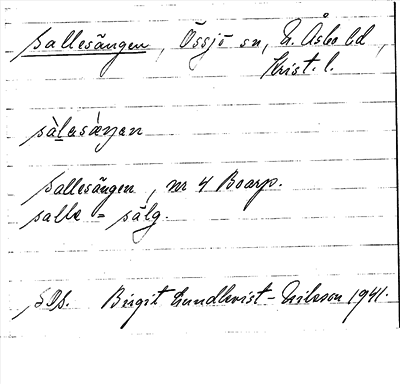 sallesängen, Össjö sn, N. Åsbo hd,
Krist. l.
sàlesàŋen
sallesängen, nr 4 Boarp.
salle = sälg.
SOA. Birgit Lundkvist-Nilsson 1941.